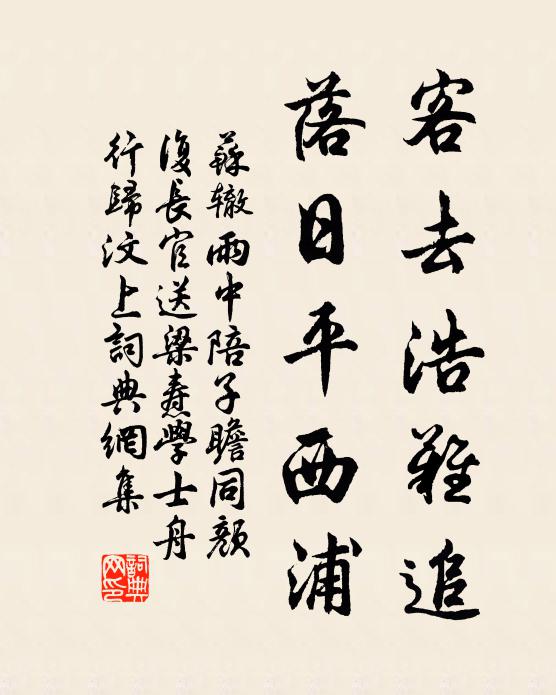 客去浩難追
落日平西浦
蘇轍雨中陪子瞻同顏
復長官送梁燾學士舟
行歸汶上詞典網集
詞典
网印